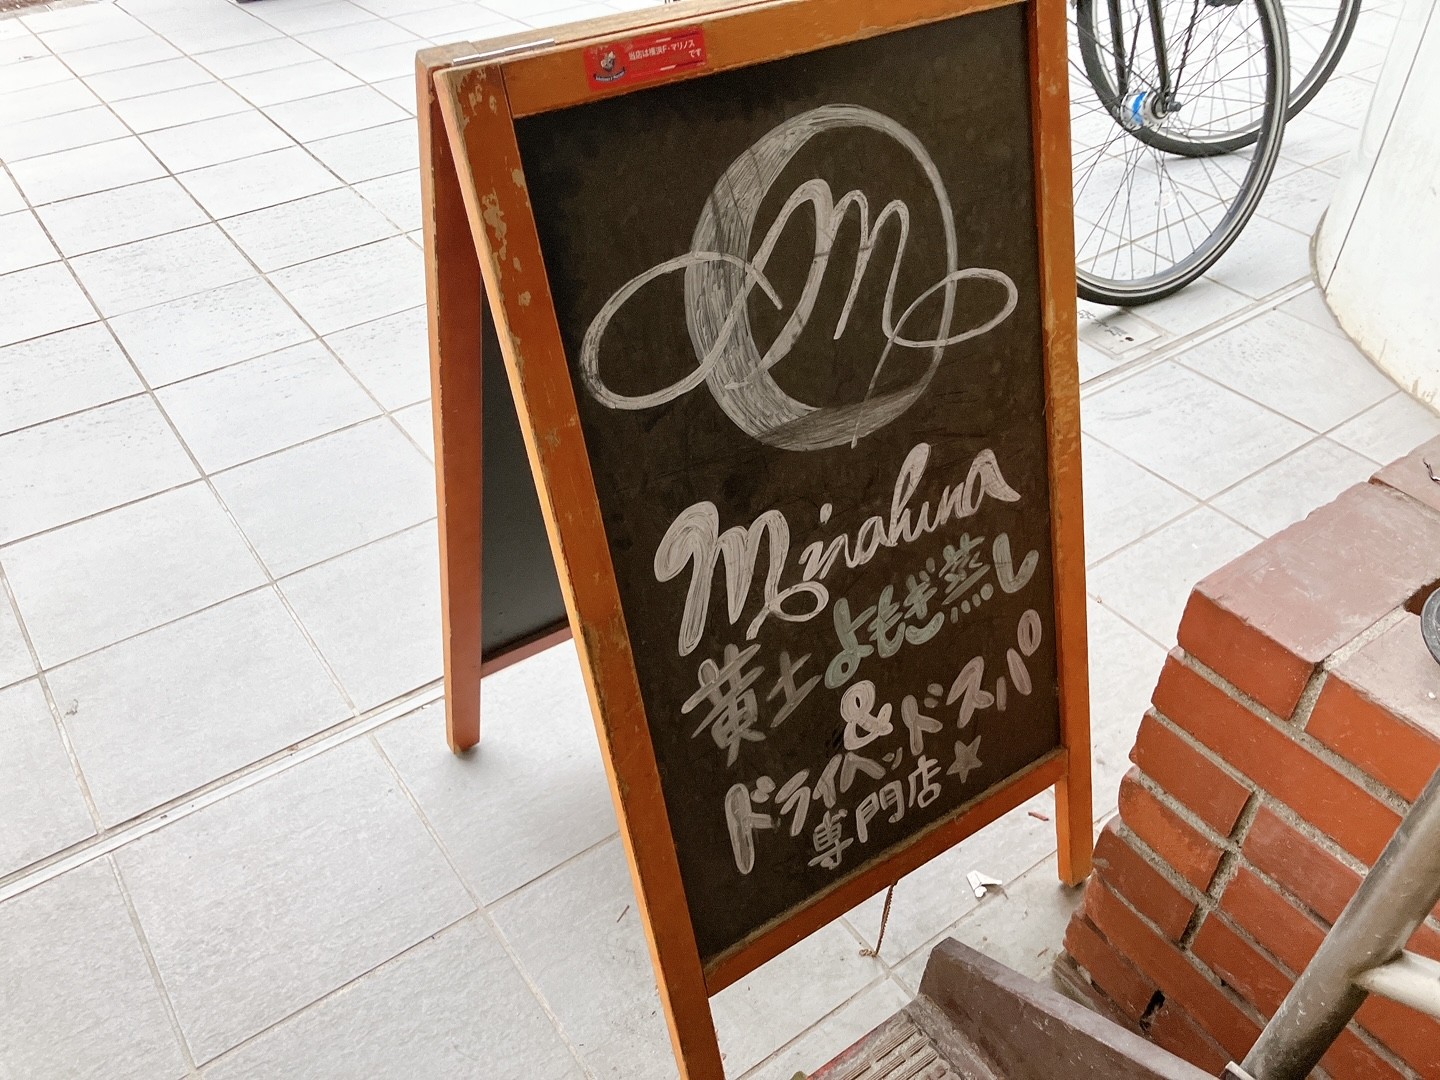 当店は横浜F・マリノス
です
M
Minahuna
黄土よもぎ蒸し
&
ドライヘッドスパ
専門店☆